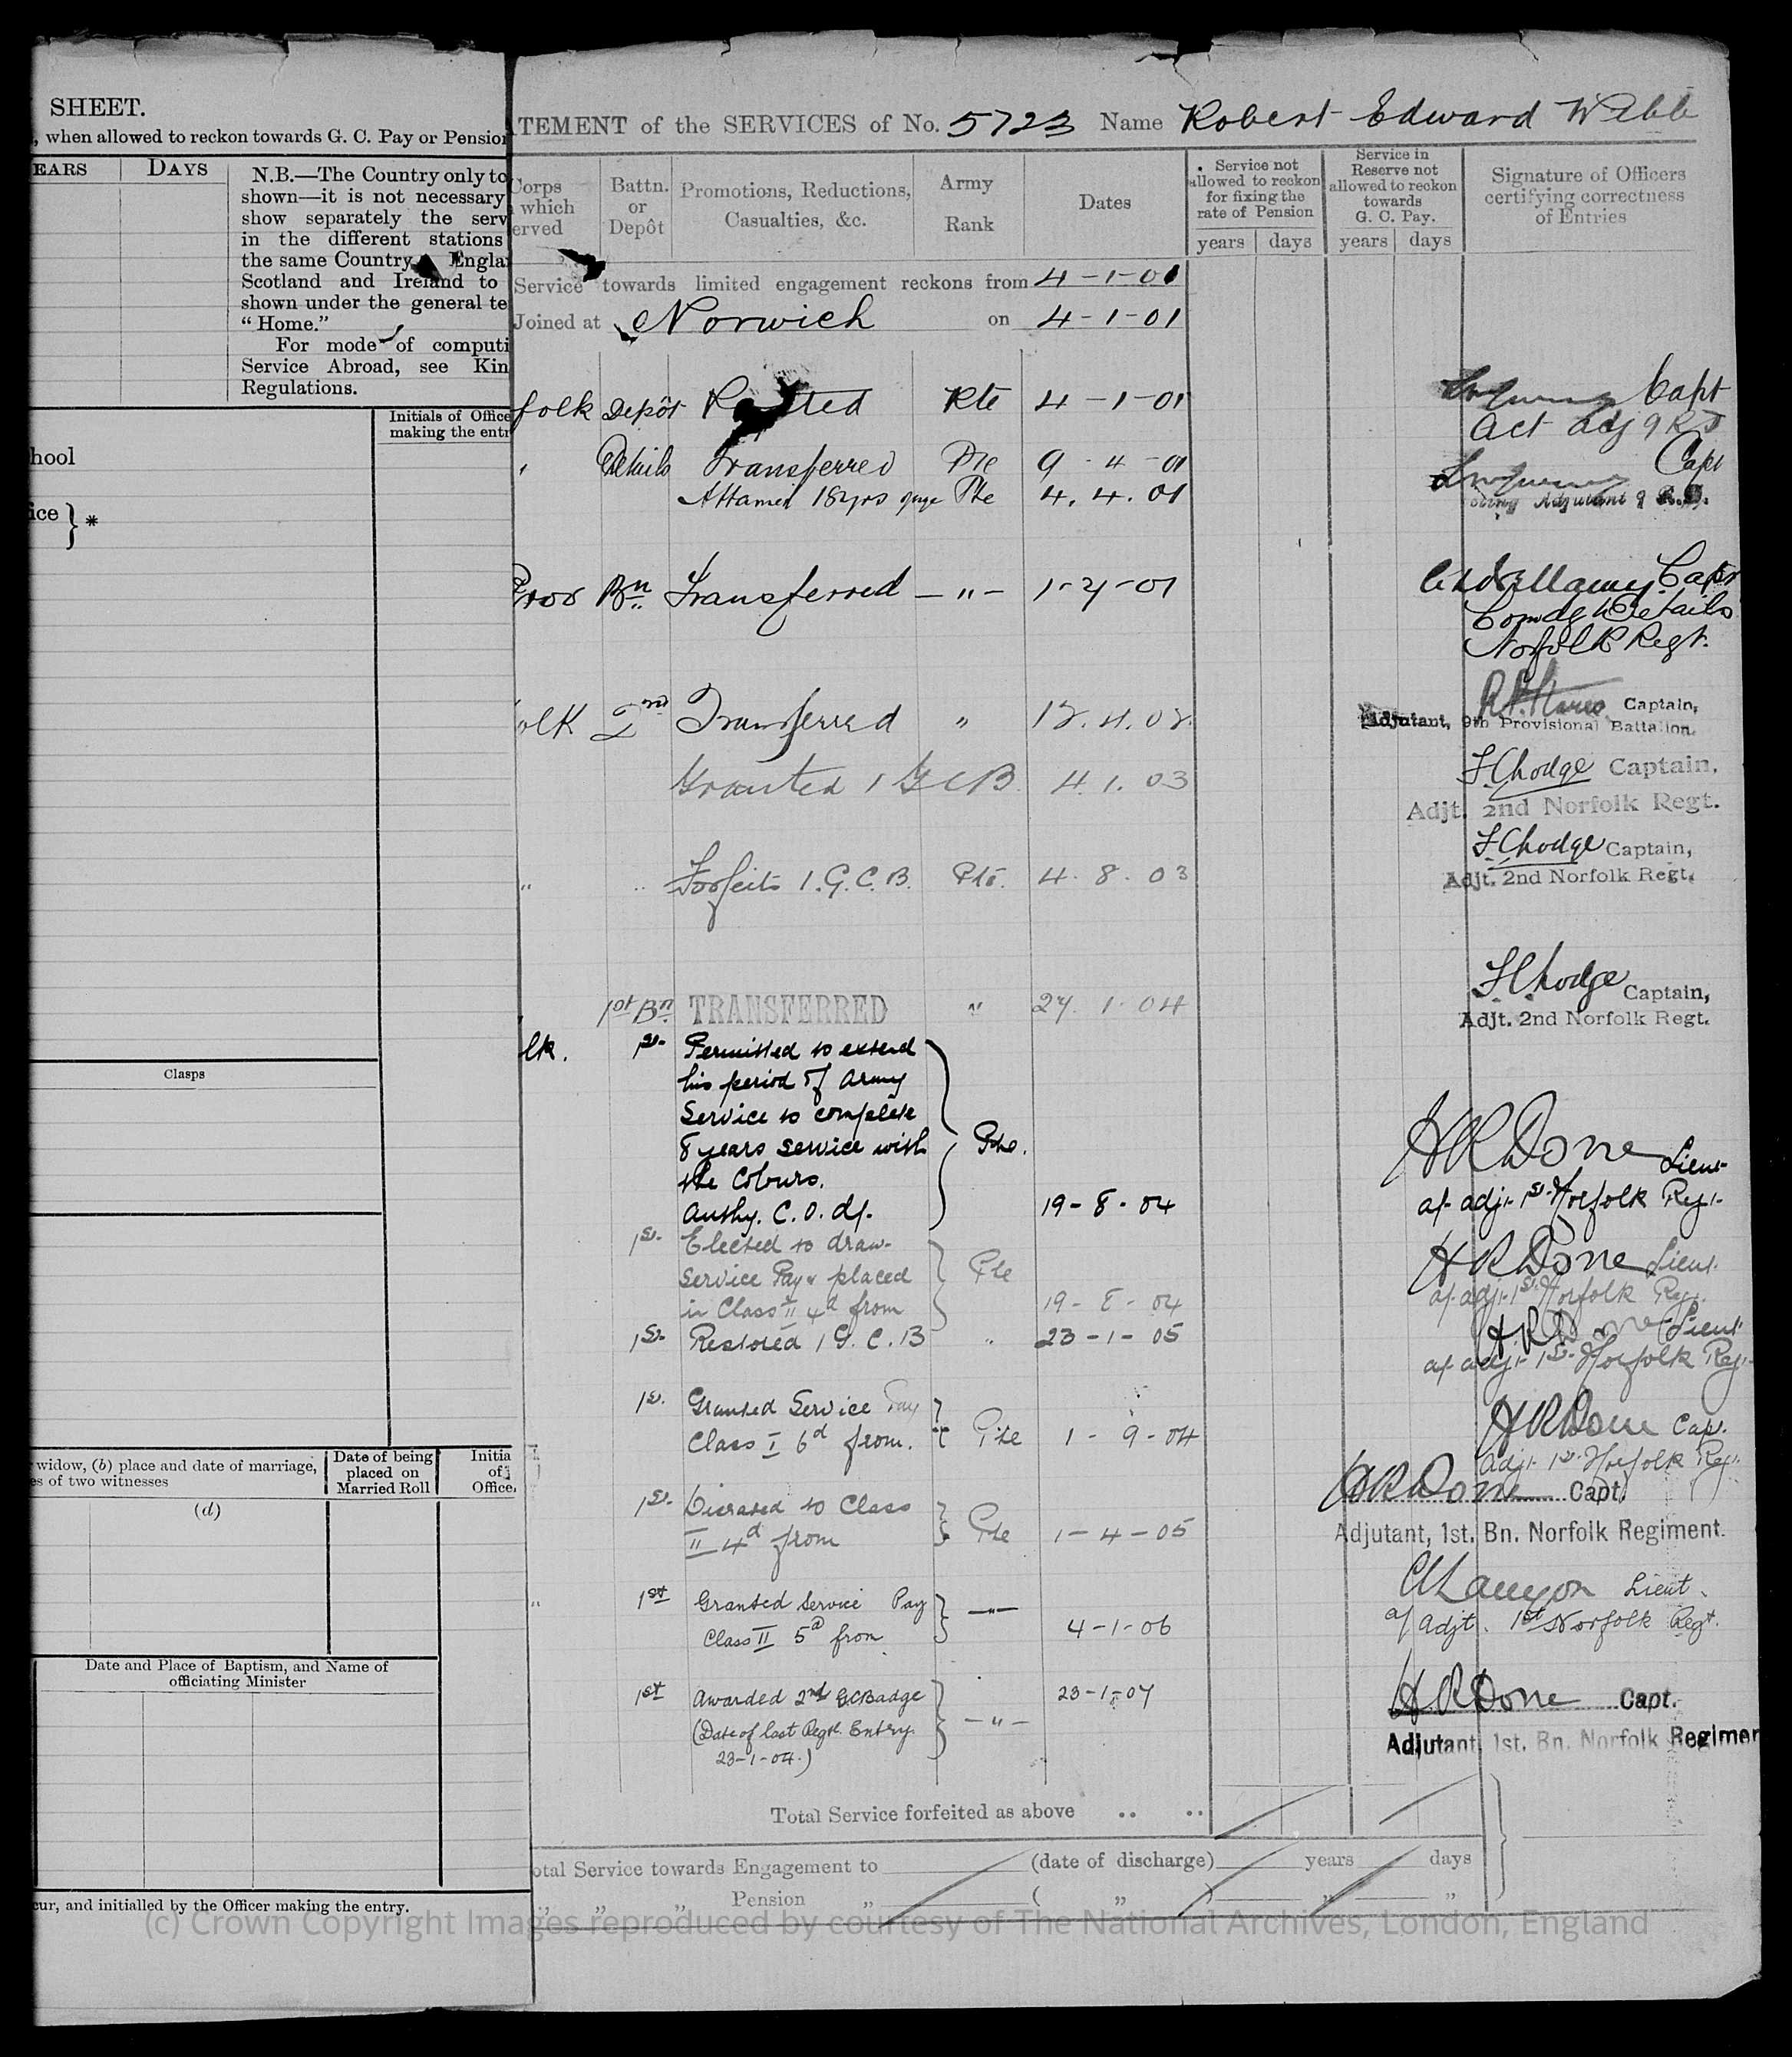 SHEET.
, when allowed to reckon towards G. C. Pay or Pension
EARS DAYS
N.B.—The Country only to
shown—it is not necessary
show separately the serv
in the different stations
the same Country. Engla
Scotland and Ireland to
shown under the general te
“Home.”
For mode of computi
Service Abroad, see Kin
Regulations.
Initials of Office
making the entr
hool
ice } *
Clasps
widow, (b) place and date of marriage,
es of two witnesses
Date of being
placed on
Married Roll
Initia
of
Office.
(d)
Date and Place of Baptism, and Name of
officiating Minister
cur, and initialled by the Officer making the entry.
TEMENT of the SERVICES of No. 5723 Name Robert Edward Webb
Corps
which
erved
Battn.
or
Depôt
Promotions, Reductions,
Casualties, &c.
Army
Rank
Dates
Service not
allowed to reckon
for fixing the
rate of Pension
years days
Service in
Reserve not
allowed to reckon
towards
G. C. Pay.
years days
Signature of Officers
certifying correctness
of Entries
Service towards limited engagement reckons from 4-1-01
Joined at Norwich on 4-1-01
folk Depôt Posted Pte 4-1-01 Capt
act adj 9 R D
Details Transferred Pte 9-4-01 Capt
Attained 18 yrs of age Pte 4.4.01 Acting Adjutant 9 R.D.
Prov Bn Transferred — " — 1-7-01 Capt
Comdg Details
Norfolk Regt.
olk 2nd Transferred " 12.4.02 Captain,
Adjutant, 9th Provisional Battalion.
Granted 1 GCB 4.1.03 F Chodge Captain,
Adjt. 2nd Norfolk Regt.
" " Forfeits 1.G.C.B. Pte. 4.8.03 F Chodge Captain,
Adjt. 2nd Norfolk Regt.
1st Bn TRANSFERRED " 27.1.04 F Chodge Captain,
Adjt. 2nd Norfolk Regt.
lk. 1st Permitted to extend
his period of Army
Service to complete
8 years service with
the Colours. Pte.
Authy. C.O. d/. 19-8-04 H R Done Lieut
a/ adjt 1st Norfolk Reg.
1st Elected to draw
Service Pay & placed
in Class II 4d from Pte 19-8-04 H R Done Lieut
a/ adjt 1st Norfolk Reg.
1st Restored 1 G.C.B " 23-1-05 H R Done Lieut
a/ adjt 1st Norfolk Reg.
1st Granted Service Pay
Class I 6d from. Pte 1-9-04 H R Done Cap.
Adjt 1st Norfolk Reg.
1st to Class
II 4d from Pte 1-4-05 H R Done Capt.
Adjutant, 1st. Bn. Norfolk Regiment.
" 1st Granted Service Pay
Class II 5d from — " — 4-1-06 Lieut.
a/ Adjt. 1st Norfolk Regt.
1st Awarded 2nd G.C Badge
(Date of last Regtl. Entry
23-1-04.) — " — 23-1-07 H R Done Capt.
Adjutant, 1st. Bn. Norfolk Regimen
Total Service forfeited as above .. ..
otal Service towards Engagement to (date of discharge) years days
„ „ „ Pension „ ( „ ) „ „
(c) Crown Copyright Images reproduced by courtesy of The National Archives, London, England